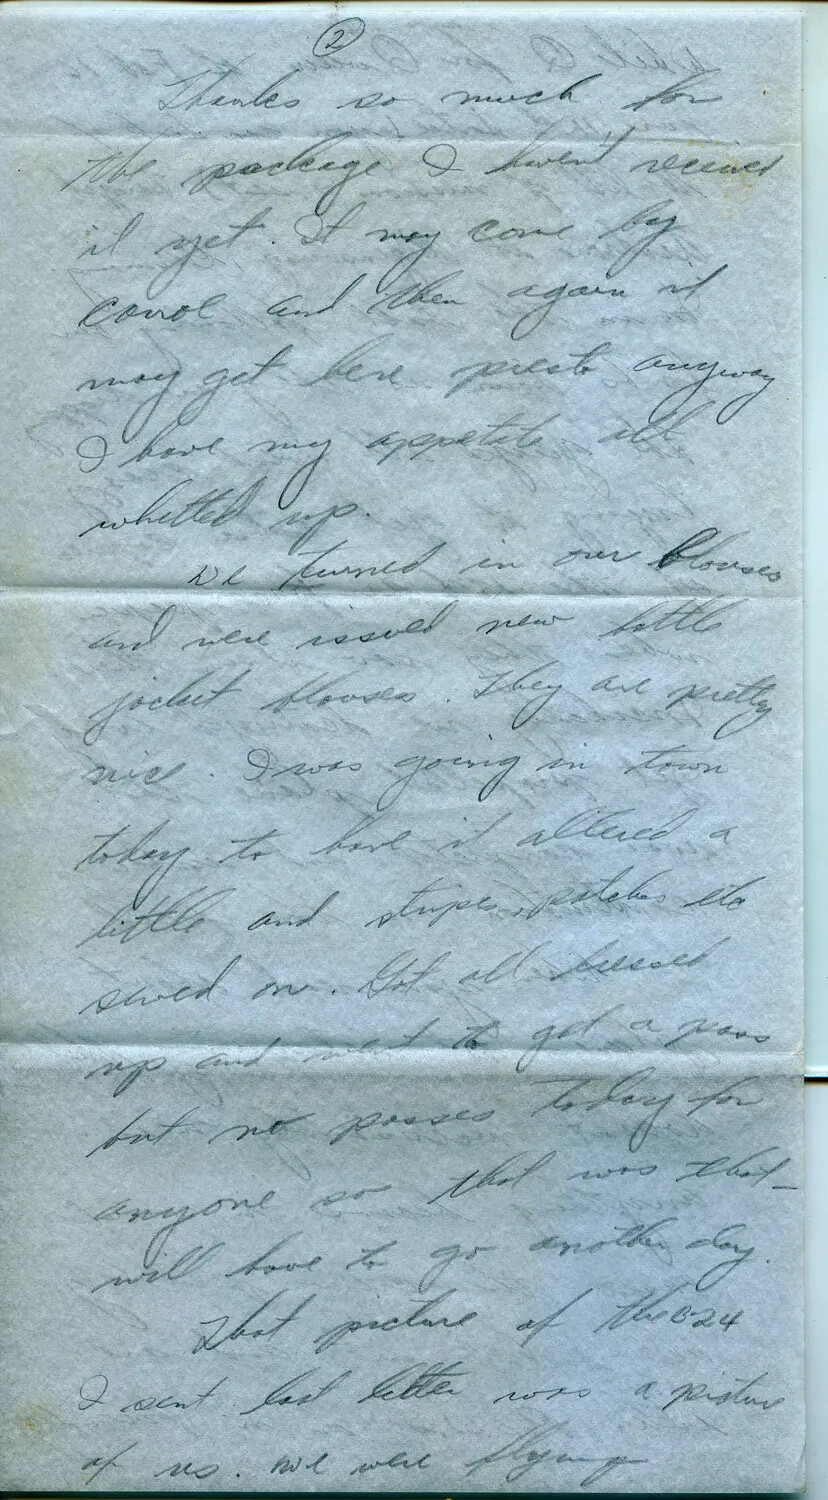 2
Thanks so much for
the package I haven't received
it yet. It may come by
and then again it
may get here presto anyway
I have my appetite all
whetted up.
We turned in our blouses
and were issued new battle
jacket blouses. They are pretty
nice. I was going in town
today to have it altered a
little and stripes, patches etc
sewed on. Got all dressed
up and went to get a pass
but no passes today for
anyone so that was that –
will have to go another day.
That picture of the B-24
I sent last letter was a picture
of us. We were flying